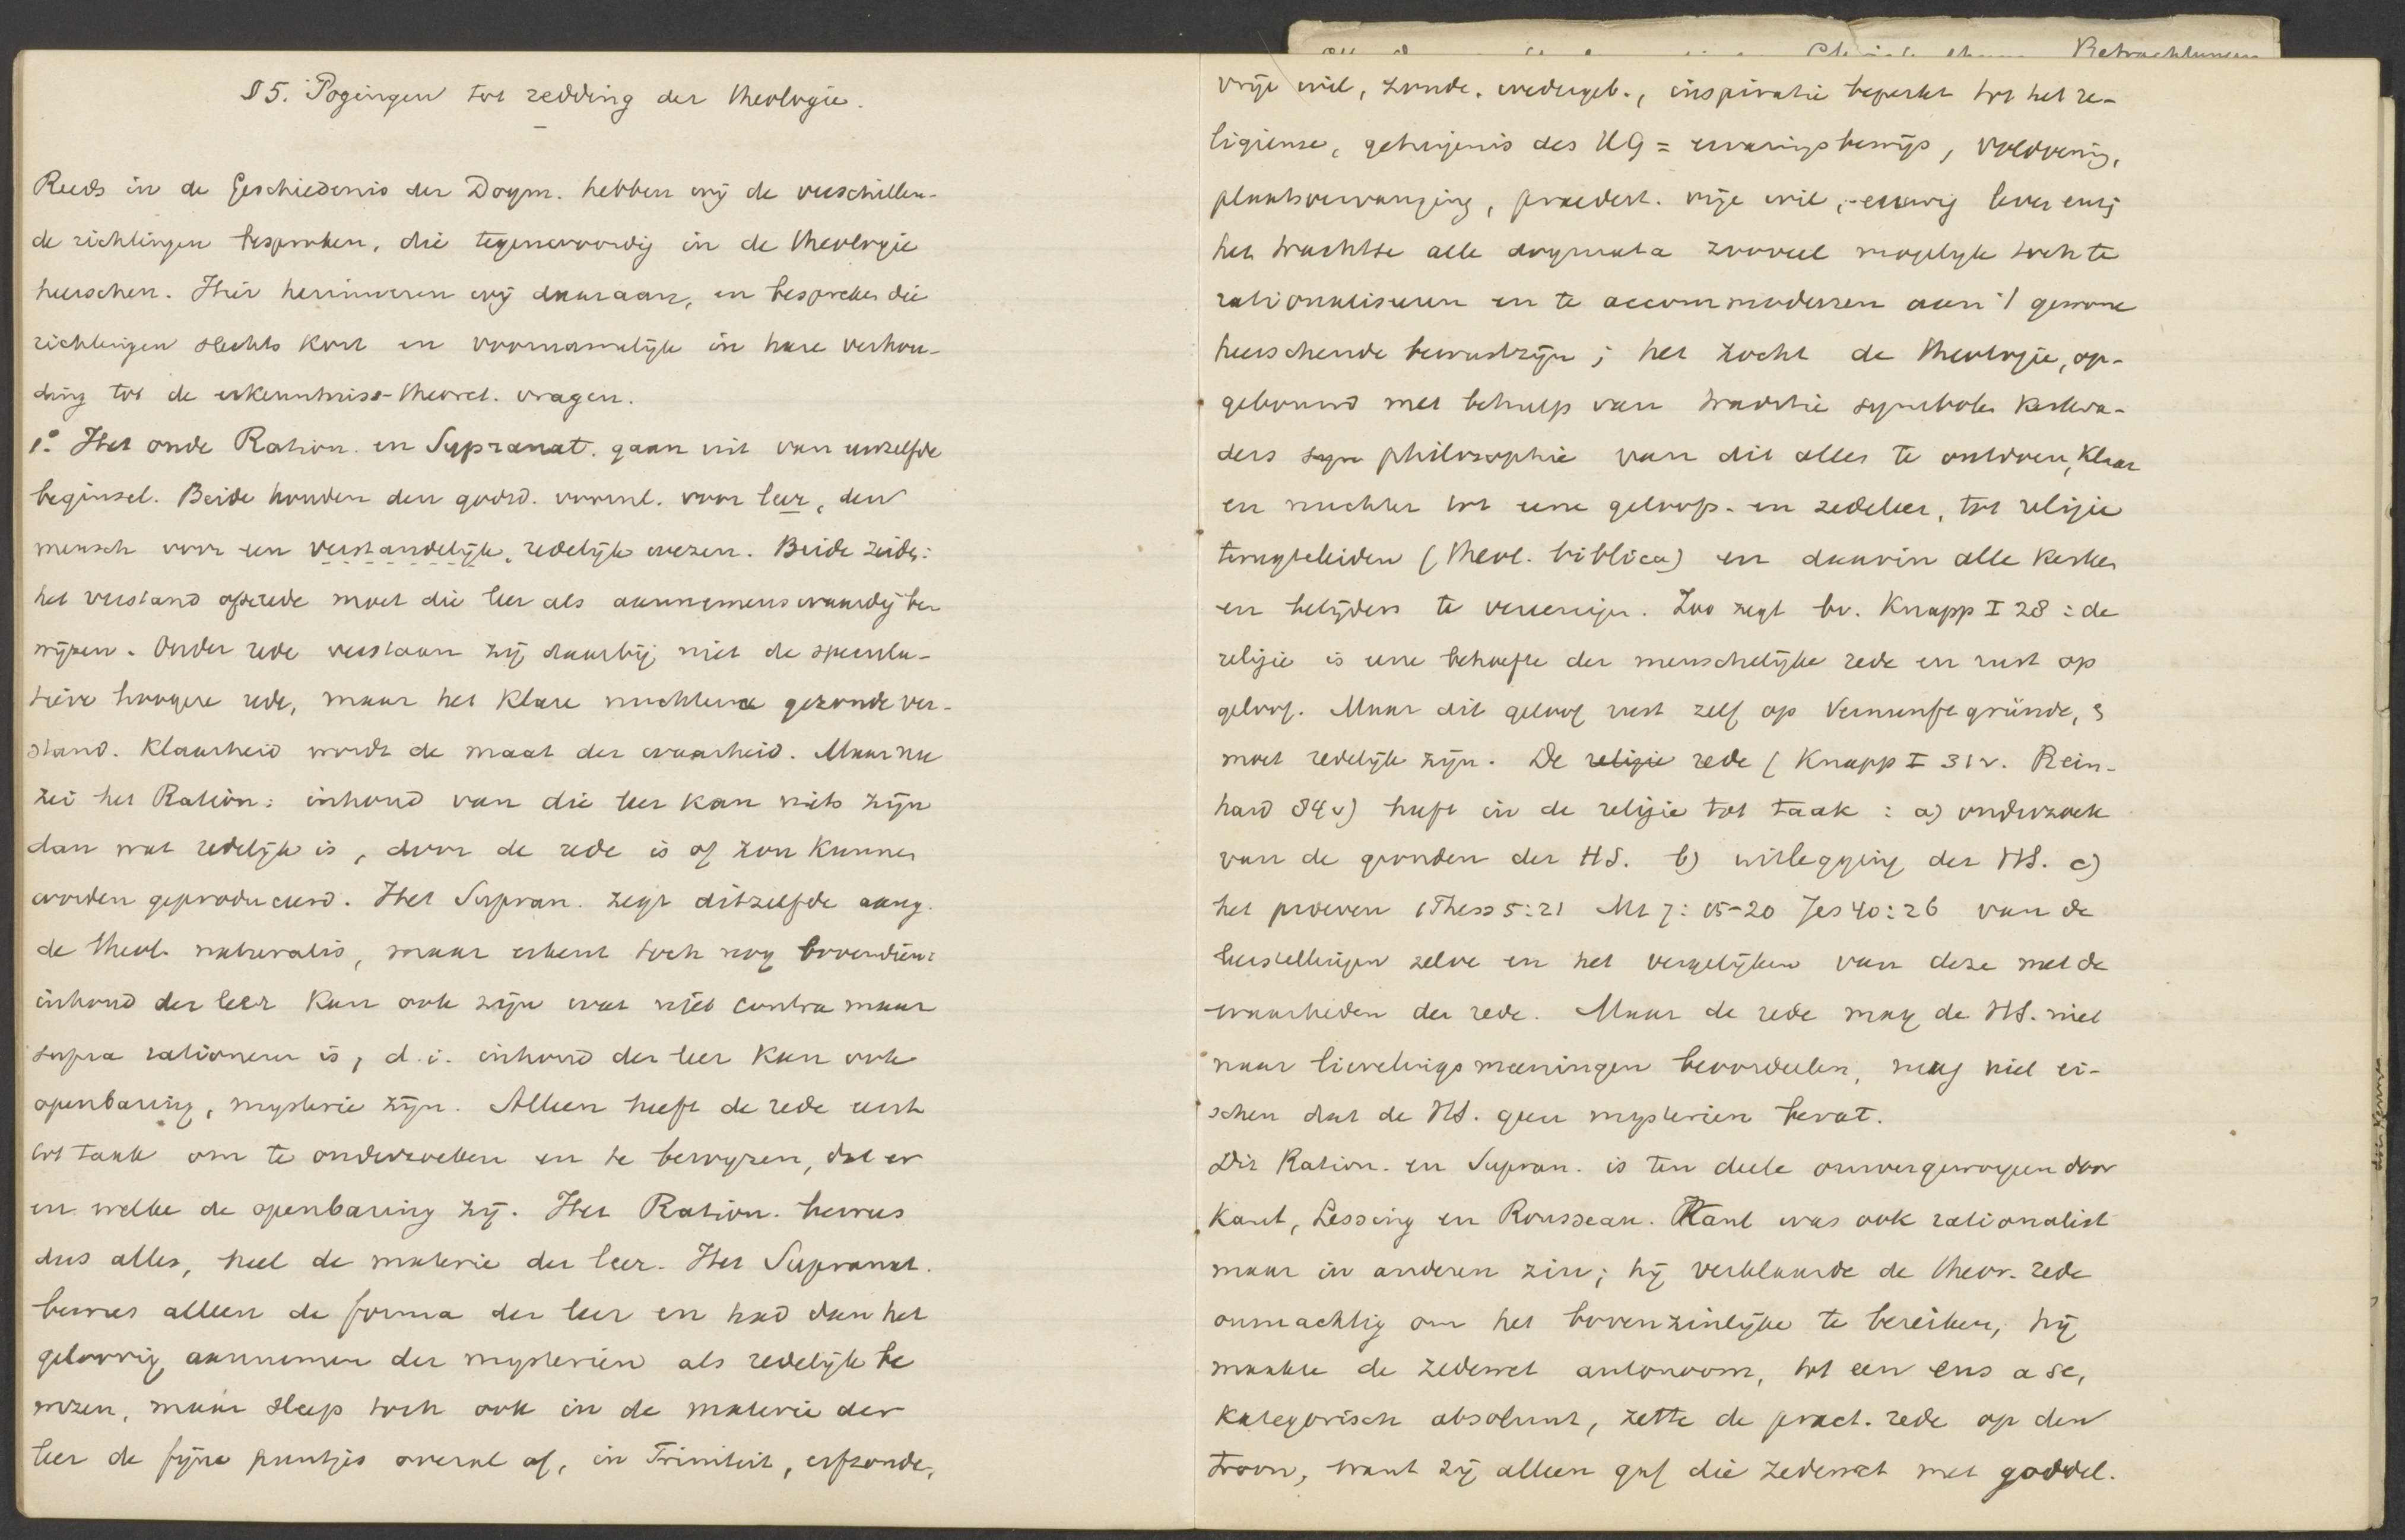 §5. Pogingen tot redding der theologie.
Reeds in de Geschiedenis der Dogm. hebben wij de verschillen-
de richtingen besproken, die tegenwoordig in de theologie
heerschen. Hier herinneren wij daaraan, en bespreken die
richtingen slechts kort en voornamelijk in hare verhou-
ding tot de erkenntniss-theoret. vragen.
1º. Het oude Ration. en Supranat. gaan uit van eenzelfde
beginsel. Beide houden den godsd. voornl. voor leer, den
mensch voor een verstandelijk, redelijk wezen. Beide zeiden:
het verstand of rede moet die leer als aannemenswaardig be
wijzen. Onder rede verstaan zij daarbij niet de specula-
tieve hoogere rede, maar het klare nuchtere gezonde ver-
stand. Klaarheid wordt de maat der waarheid. Maar nu
zei het Ration: inhoud van die leer kan niets zijn
dan wat redelijk is, door de rede is of zou kunnen
worden geproduceerd. Het Supran. zegt ditzelfde aang.
de theol. naturalis, maar erkent toch nog bovendien:
inhoud der leer kan ook zijn wat niet contra maar
supra rationem is, d.i. inhoud der leer kan ook
openbaring, mysterie zijn. Alleen heeft de rede eerst
tot taak om te onderzoeken en te bewijzen, dat er
en welke de openbaring zij. Het Ration. bewees
dus alles, heel de materie der leer. Het Supranat.
bewees alleen de forma der leer en had dan het
geloovig aannemen der mysteriën als redelijk be
wezen, maar sleep toch ook in de materie der
leer de fijne puntjes overal af, in Triniteit, erfzonde,
vrije wil, zonde, wedergeb., inspiratie beperkt tot het re-
ligieuse, getuigenis des HG = ervaringsbewijs, voldoening,
plaatsvervanging, praedest. vrije wil, eeuwig leven enz;
het trachtte alle dogmata zooveel mogelijk toch te
rationaliseeren en te accommodeeren aan 't gewone
heerschende bewustzijn; het zocht de theologie, op-
gebouwd met behulp van traditie symbolen kerkva-
ders philosophie van dit alles te ontdoen, klaar
en nuchter tot eene geloofs- en zedeleer, tot religie
terugteleiden (theol. biblica) en daarin alle kerken
en belijders te vereenigen. Zoo zegt bv. Knapp I 28: de
religie is eene behoefte der menschelijke rede en rust op
geloof. Maar dit geloof rust zelf op Vernunftgründe, &
moet redelijk zijn. De religie rede (Knapp I 31v. Rein-
hard 84v) heeft in de religie tot taak: a) onderzoek
van de gronden der HS. b) uitlegging der HS. c)
het proeven 1Thess 5:21 Mt 7:15-20 Jes 40:26 van de
leerstellingen zelve en het vergelijken van deze met de
waarheden der rede. Maar de rede mag de HS. niet
naar lievelingsmeeningen beoordeelen, mag niet ei-
schen dat de HS. geen mysteriën bevat.
Dit Ration. en Supran. is ten deele omvergeworpen door
Kant, Lessing en Rousseau. Kant was ook rationalist
maar in anderen zin; hij verklaarde de theor. rede
onmachtig om het bovenzinlijke te bereiken, hij
maakte de zedewet autonoom, tot een ens a se,
kategorisch absoluut, zette de pract. rede op den
troon, want zij alleen gaf die zedewet met goddel.